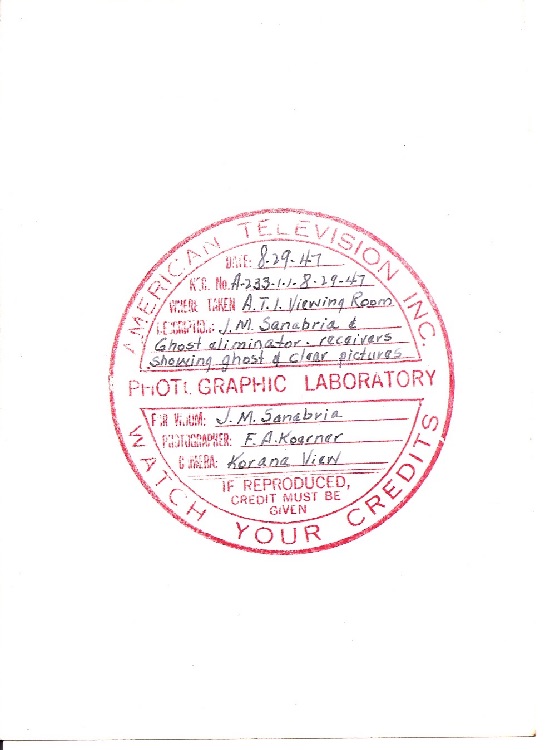 AMERICAN TELEVISION INC.
DATE: 8-29-47
NEG. No. A-233-1-1-8-29-47
WHERE TAKEN A.T.I. Viewing Room
DESCRIPTION: J.M. Sanabria &
Ghost eliminator - receivers
showing ghost & clear pictures
PHOTOGRAPHIC LABORATORY
FOR WHOM: J.M. Sanabria
PHOTOGRAPHER: F.A. Koerner
CAMERA: Korana View
IF REPRODUCED,
CREDIT MUST BE
GIVEN
WATCH YOUR CREDITS